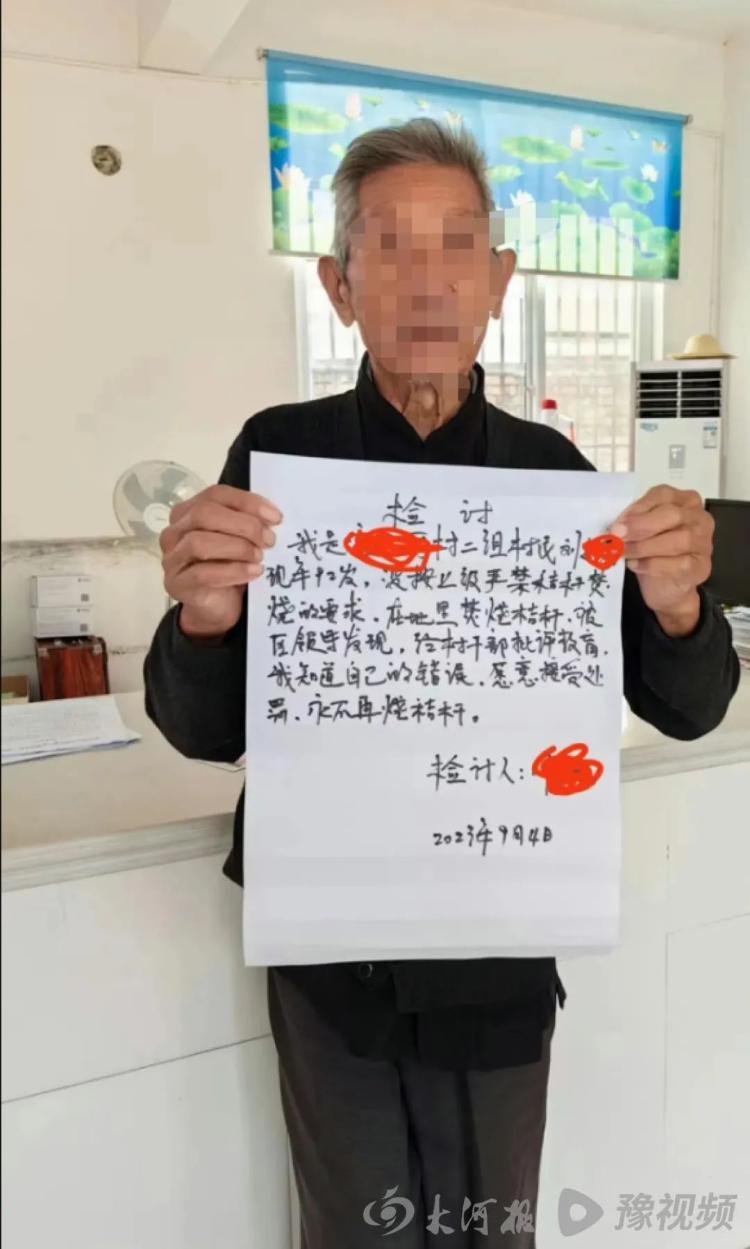 检 讨
我是 村二组村民刘
现年92岁，没按上级严禁秸秆焚
烧的要求，在地里焚烧秸秆，被
区领导发现，经村干部批评教育，
我知道自己的错误，愿意接受处
罚，永不再烧秸秆。
检讨人：
2023年9月4日
大河报 豫视频